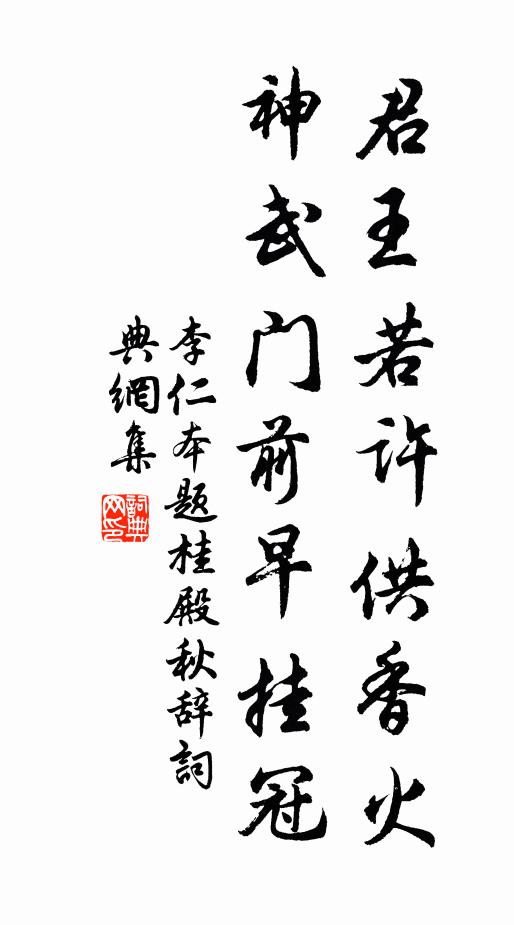 君王若许供香火
神武门前早挂冠
李仁本题桂殿秋辞詞
典網集
詞典网印